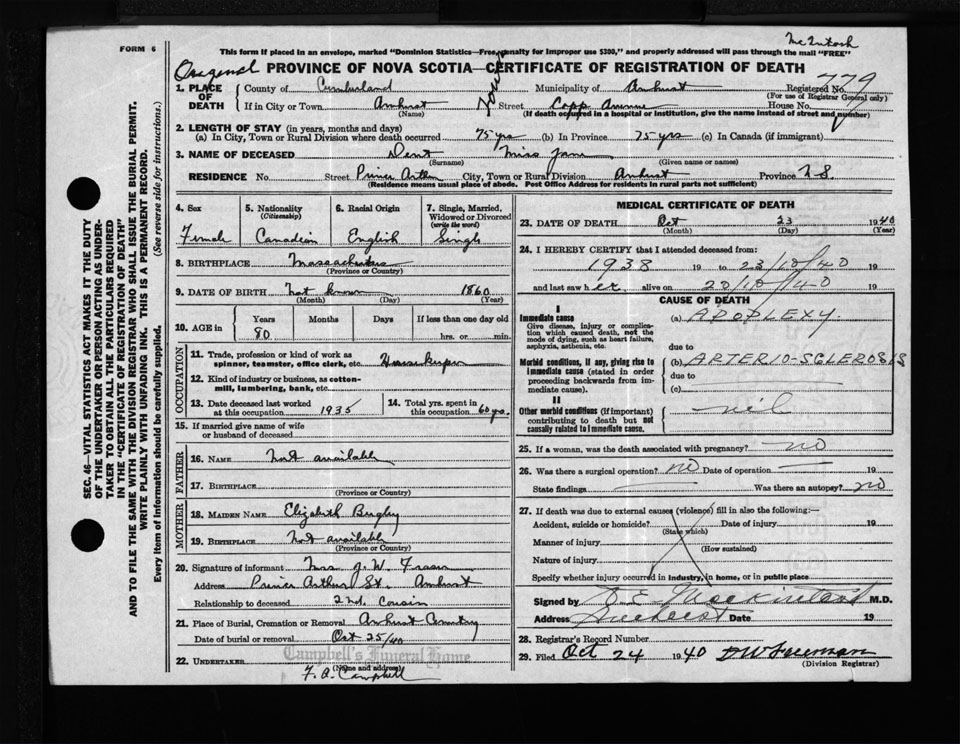 McIntosh
FORM 6
This form if placed in an envelope, marked "Dominion Statistics—Free, penalty for improper use $300," and properly addressed will pass through the mail "FREE"
Original PROVINCE OF NOVA SCOTIA—CERTIFICATE OF REGISTRATION OF DEATH
779
1. PLACE OF DEATH
County of Cumberland Municipality of Amherst Registered No.
(For use of Registrar General only)
If in City or Town Amherst Street Copp Avenue House No.
(Name) (If death occurred in a hospital or institution, give the name instead of street and number)
2. LENGTH OF STAY (in years, months and days)
(a) In City, Town or Rural Division where death occurred 75 yrs (b) In Province 75 yrs (c) In Canada (if immigrant)
3. NAME OF DECEASED Dent Miss Jane
(Surname) (Given name or names)
RESIDENCE No. Street Prince Arthur City, Town or Rural Division Amherst Province N.S.
(Residence means usual place of abode. Post Office Address for residents in rural parts not sufficient)
4. Sex
Female
5. Nationality
(Citizenship)
Canadian
6. Racial Origin
English
7. Single, Married, Widowed or Divorced
(write the word)
Single
8. BIRTHPLACE Massachusetts
(Province or Country)
9. DATE OF BIRTH Not known 1860
(Month) (Day) (Year)
10. AGE in Years Months Days If less than one day old
80 hrs. or min.
OCCUPATION
11. Trade, profession or kind of work as spinner, teamster, office clerk, etc. Housekeeper
12. Kind of industry or business, as cotton-mill, lumbering, bank, etc.
13. Date deceased last worked at this occupation 1935
14. Total yrs. spent in this occupation 60 yrs.
15. If married give name of wife or husband of deceased
FATHER
16. NAME Not available
17. BIRTHPLACE
(Province or Country)
MOTHER
18. MAIDEN NAME Elizabeth
19. BIRTHPLACE Not available
(Province or Country)
20. Signature of informant Mrs. J. W. Fraser
Address Prince Arthur St. Amherst
Relationship to deceased 2nd. Cousin
21. Place of Burial, Cremation or Removal Amherst Cemetery
Date of burial or removal Oct 25/40
Campbell's Funeral Home
22. UNDERTAKER
(Name and address)
F. A. Campbell
MEDICAL CERTIFICATE OF DEATH
23. DATE OF DEATH Oct 23 1940
(Month) (Day) (Year)
24. I HEREBY CERTIFY that I attended deceased from:
1938 19 to 23/10/40 19
and last saw her alive on 20/10/40 19
CAUSE OF DEATH
I
Immediate cause
Give disease, injury or complication which caused death, not the mode of dying, such as heart failure, asphyxia, asthenia, etc.
(a) APOPLEXY.
due to
Morbid conditions, if any, giving rise to immediate cause (stated in order proceeding backwards from immediate cause).
(b) ARTERIO-SCLEROSIS
due to
(c)
II
Other morbid conditions (if important) contributing to death but not causally related to immediate cause.
nil
25. If a woman, was the death associated with pregnancy? no
26. Was there a surgical operation? no Date of operation 19
State findings Was there an autopsy? no
27. If death was due to external causes (violence) fill in also the following:—
Accident, suicide or homicide? Date of injury 19
(State which)
Manner of injury
(How sustained)
Nature of injury
Specify whether injury occurred in industry, in home, or in public place
Signed by M.D.
Address Amherst Date 19
28. Registrar's Record Number
29. Filed Oct 24 1940 D W Freeman
(Division Registrar)
SEC. 46—VITAL STATISTICS ACT MAKES IT THE DUTY
OF THE UNDERTAKER OR PERSON ACTING AS UNDER-
TAKER TO OBTAIN ALL THE PARTICULARS REQUIRED
IN THE "CERTIFICATE OF REGISTRATION OF DEATH"
AND TO FILE THE SAME WITH THE DIVISION REGISTRAR WHO SHALL ISSUE THE BURIAL PERMIT.
WRITE PLAINLY WITH UNFADING INK. THIS IS A PERMANENT RECORD.
Every item of information should be carefully supplied. (See reverse side for instructions.)